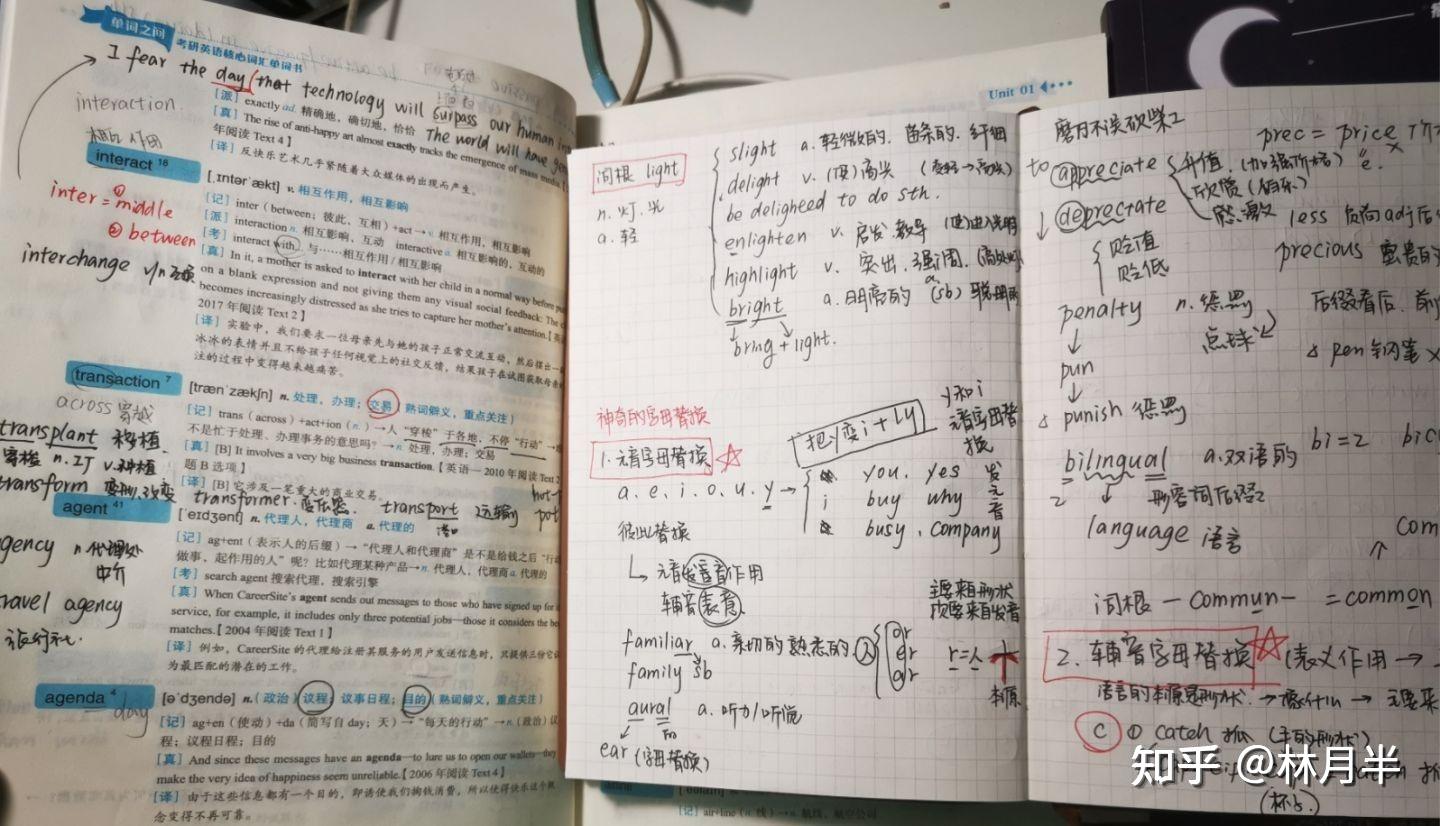 单词之间
考研英语核心词汇单词书
I fear the day (that technology will surpass our human
[派] exactly ad. 精确地，确切地，恰恰
The world will have
[真] The rise of anti-happy art almost exactly tracks the emergence of mass media.
年阅读 Text 4】
[译] 反快乐艺术几乎紧随着大众媒体的出现而产生。
interaction.
相互作用
interact 18
[ˌɪntərˈækt] v. 相互作用，相互影响
[记] inter (between; 彼此，互相) +act→v. 相互作用，相互影响
[派] interaction n. 相互影响，互动 interactive a. 相互影响的，互动的
[考] interact with 与……相互作用/相互影响
[真] In it, a mother is asked to interact with her child in a normal way before
on a blank expression and not giving them any visual social feedback: The
becomes increasingly distressed as she tries to capture her mother's attention.
2017 年阅读 Text 2】
[译] 实验中，我们要求一位母亲先与她的孩子正常交流互动，然后摆出一
冰冰的表情并且不给孩子任何视觉上的社交反馈，结果孩子在试图获取母亲
注的过程中变得越来越痛苦。
inter = ① middle
② between
interchange v/n 互换
transaction 7
[trænˈzækʃn] n. 处理，办理；交易（熟词僻义，重点关注）
across 穿越
[记] trans (across) +act+ion (n.) →人"穿梭"于各地，不停"行动"→
不是忙于处理、办理事务的意思吗？→n. 处理，办理；交易
[真] [B] It involves a very big business transaction.【英语一 2010 年阅读 Text
题 B 选项】
[译] [B] 它涉及一笔重大的商业交易。
transplant 移植
n. v. 种植
transform 变形,改变
transformer 变压器. transport 运输
港口
agent 41
[ˈeɪdʒənt] n. 代理人，代理商 a. 代理的
[记] ag+ent（表示人的后缀）→"代理人和代理商"是不是给钱之后"行动
做事，起作用的人"呢？比如代理某种产品→n. 代理人，代理商 a. 代理的
[考] search agent 搜索代理，搜索引擎
[真] When CareerSite's agent sends out messages to those who have signed up for
service, for example, it includes only three potential jobs—those it considers the
matches.【2004 年阅读 Text 1】
[译] 例如，CareerSite 的代理给注册其服务的用户发送信息时，只提供三份
为最匹配的潜在的工作。
gency n 代理处
中介
ravel agency
旅行社.
agenda 4
day
[əˈdʒendə] n.（政治）议程；议事日程；目的（熟词僻义，重点关注）
[记] ag+en（使动）+da（简写自 day；天）→"每天的行动"→n.（政治）议
程；议程日程；目的
[真] And since these messages have an agenda—to lure us to open our wallets—they
make the very idea of happiness seem unreliable.【2006 年阅读 Text 4】
[译] 由于这些信息都有一个目的，即诱使我们掏钱消费，所以使得快乐这个概
念变得不再可靠。
Unit 01
词根 light
n. 灯.光
a. 轻
slight a. 轻微的. 苗条的. 纤细
delight v. (使)高兴 (变轻→高兴)
be deligheed to do sth.
enlighten v. 启发.教导
highlight v. 突出.强调.
bright a. 明亮的 (sb) 聪明
bring + light.
神奇的字母替换
1. 元音字母替换
把y变i + ly
y和i
元音字母替
换
a. e. i. o. u. y →
you. yes
i buy why
busy . company
发
元
音
彼此替换
元音发音作用
辅音表意
主要来自形状
次要来自发音
familiar a. 亲切的 熟悉的
family sb
人
or
er
ar
r=人
本原
aural a. 听力/听觉
ear (字母替换)
磨刀不误砍柴工
prec = price
to appreciate 升值 (加强价格)
欣赏
感激
e.
depreciate
贬值
贬低
less 负向adj后
precious 宝贵的
penalty n. 惩罚
点球
后缀看后.
pun
pen 钢笔 x
punish 惩罚
bilingual a.双语的 bi=2
2 形容词后缀
language 语言
com
词根 — commun- = common
2. 辅音字母替换 (表义作用 →
语言的本原是形状.
C ① catch 抓 (手的形状)
(杯子)
[记] air+line (n. 线) →n. 航线，航空公司
知乎 @林月半